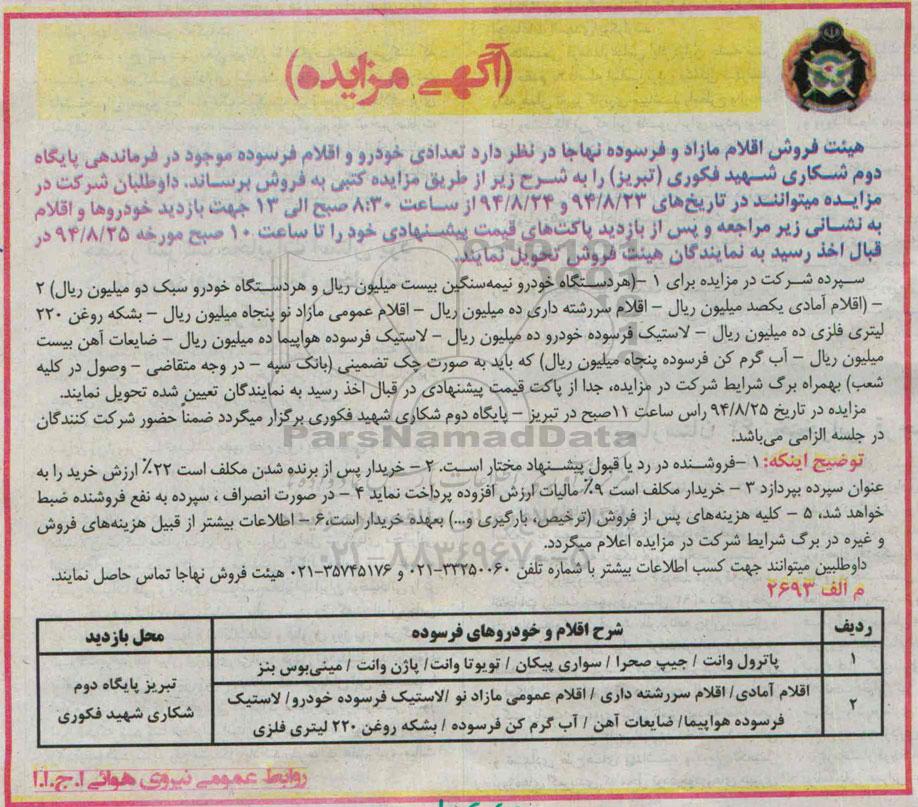 (آگهی مزایده)
هیئت فروش اقلام مازاد و فرسوده نهاجا در نظر دارد تعدادی خودرو و اقلام فرسوده موجود در فرماندهی پایگاه
دوم شکاری شهید فکوری (تبریز) را به شرح زیر از طریق مزایده کتبی به فروش برساند، داوطلبان شرکت در
مزایده میتوانند در تاریخ‌های ۹۴/۸/۲۳ و ۹۴/۸/۲۴ از ساعت ۸:۳۰ صبح الی ۱۳ جهت بازدید خودروها و اقلام
به نشانی زیر مراجعه و پس از بازدید پاکت‌های قیمت پیشنهادی خود را تا ساعت ۱۰ صبح مورخه ۹۴/۸/۲۵ در
قبال اخذ رسید به نمایندگان هیئت فروش تحویل نمایند.
سپرده شرکت در مزایده برای ۱ -(هردستگاه خودرو نیمه‌سنگین بیست میلیون ریال و هردستگاه خودرو سبک دو میلیون ریال) ۲
– (اقلام آمادی یکصد میلیون ریال – اقلام سررشته داری ده میلیون ریال – اقلام عمومی مازاد نو پنجاه میلیون ریال – بشکه روغن ۲۲۰
لیتری فلزی ده میلیون ریال – لاستیک فرسوده خودرو ده میلیون ریال – لاستیک فرسوده هواپیما ده میلیون ریال – ضایعات آهن بیست
میلیون ریال – آب گرم کن فرسوده پنجاه میلیون ریال) که باید به صورت چک تضمینی (بانک سپه – در وجه متقاضی – وصول در کلیه
شعب) بهمراه برگ شرایط شرکت در مزایده، جدا از پاکت قیمت پیشنهادی در قبال اخذ رسید به نمایندگان تعیین شده تحویل نمایند.
مزایده در تاریخ ۹۴/۸/۲۵ راس ساعت ۱۱صبح در تبریز – پایگاه دوم شکاری شهید فکوری برگزار میگردد ضمناً حضور شرکت کنندگان
در جلسه الزامی می‌باشد.
ParsNamadData
توضیح اینکه: ۱ –فروشنده در رد یا قبول پیشنهاد مختار است. ۲ – خریدار پس از برنده شدن مکلف است ۲۲٪ ارزش خرید را به
عنوان سپرده بپردازد ۳ – خریدار مکلف است ۹٪ مالیات ارزش افزوده پرداخت نماید ۴ – در صورت انصراف ، سپرده به نفع فروشنده ضبط
خواهد شد، ۵ – کلیه هزینه‌های پس از فروش (ترخیص، بارگیری و...) بعهده خریدار است.۶ – اطلاعات بیشتر از قبیل هزینه‌های فروش
و غیره در برگ شرایط شرکت در مزایده اعلام میگردد.
۰۲۱-۸۸۳۴۹۶۷۰-۵
داوطلبین میتوانند جهت کسب اطلاعات بیشتر با شماره تلفن ۳۳۲۵۰۰۶۰-۰۲۱ و ۳۵۷۴۵۱۷۶-۰۲۱ هیئت فروش نهاجا تماس حاصل نمایند.
م الف ۲۶۹۳
ردیف شرح اقلام و خودروهای فرسوده محل بازدید
۱ پاترول وانت / جیپ صحرا / سواری پیکان / تویوتا وانت/ پاژن وانت / مینی‌بوس بنز
۲ اقلام آمادی/ اقلام سررشته داری / اقلام عمومی مازاد نو /لاستیک فرسوده خودرو/ لاستیک
فرسوده هواپیما/ ضایعات آهن / آب گرم کن فرسوده / بشکه روغن ۲۲۰ لیتری فلزی
تبریز پایگاه دوم
شکاری شهید فکوری
روابط عمومی نیروی هوائی ا.ج.ا.ا